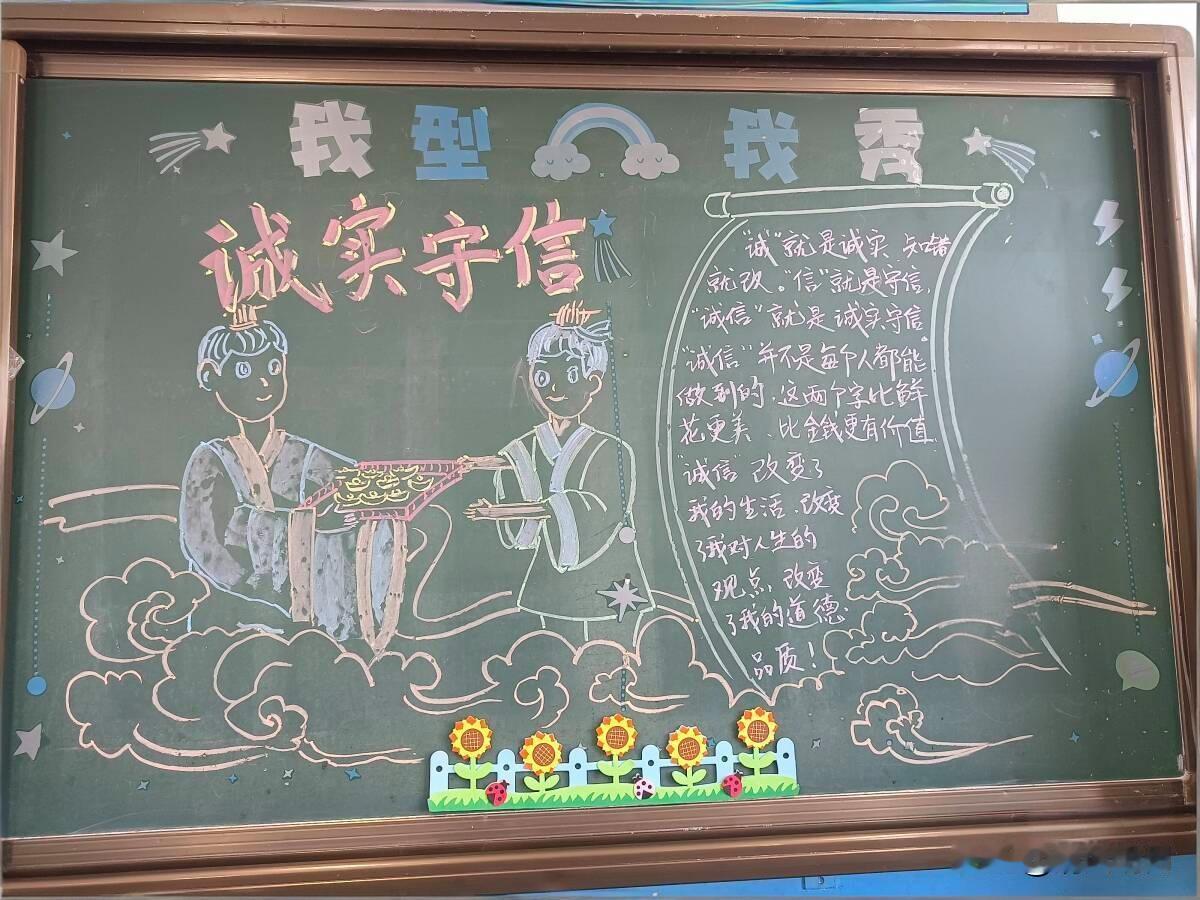 我型我秀
诚实守信
"诚"就是诚实、知错
就改。"信"就是守信,
"诚信"就是诚实守信
"诚信"并不是每个人都能
做到的,这两个字比鲜
花更美、比金钱更有价值
"诚信"改变了
我的生活,改变
了我对人生的
观点,改变
了我的道德
品质!